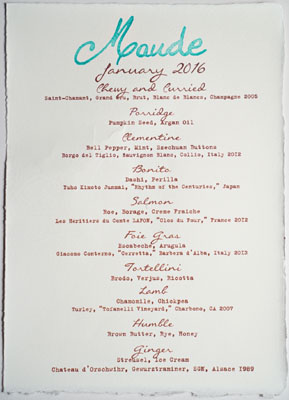 Maude
January 2016
Chewy and Curried
Saint-Chamant, Grand Cru, Brut, Blanc de Blancs, Champagne 2005
Porridge
Pumpkin Seed, Argan Oil
Clementine
Bell Pepper, Mint, Szechuan Buttons
Borgo del Tiglio, Sauvignon Blanc, Collio, Italy 2012
Bonito
Dashi, Perilla
Yuho Kimoto Junmai, "Rhythm of the Centuries," Japan
Salmon
Roe, Borage, Creme Fraiche
Les Héritiers du Comte LAFON, "Clos du Four," France 2012
Foie Gras
Escabeche, Arugula
Giacomo Conterno, "Cerretta," Barbera d'Alba, Italy 2013
Tortellini
Brodo, Verjus, Ricotta
Lamb
Chamomile, Chickpea
Turley, "Tofanelli Vineyard," Charbono, CA 2007
Humble
Brown Butter, Rye, Honey
Ginger
Streusel, Ice Cream
Chateau d'Orschwihr, Gewurztraminer, SGN, Alsace 1989